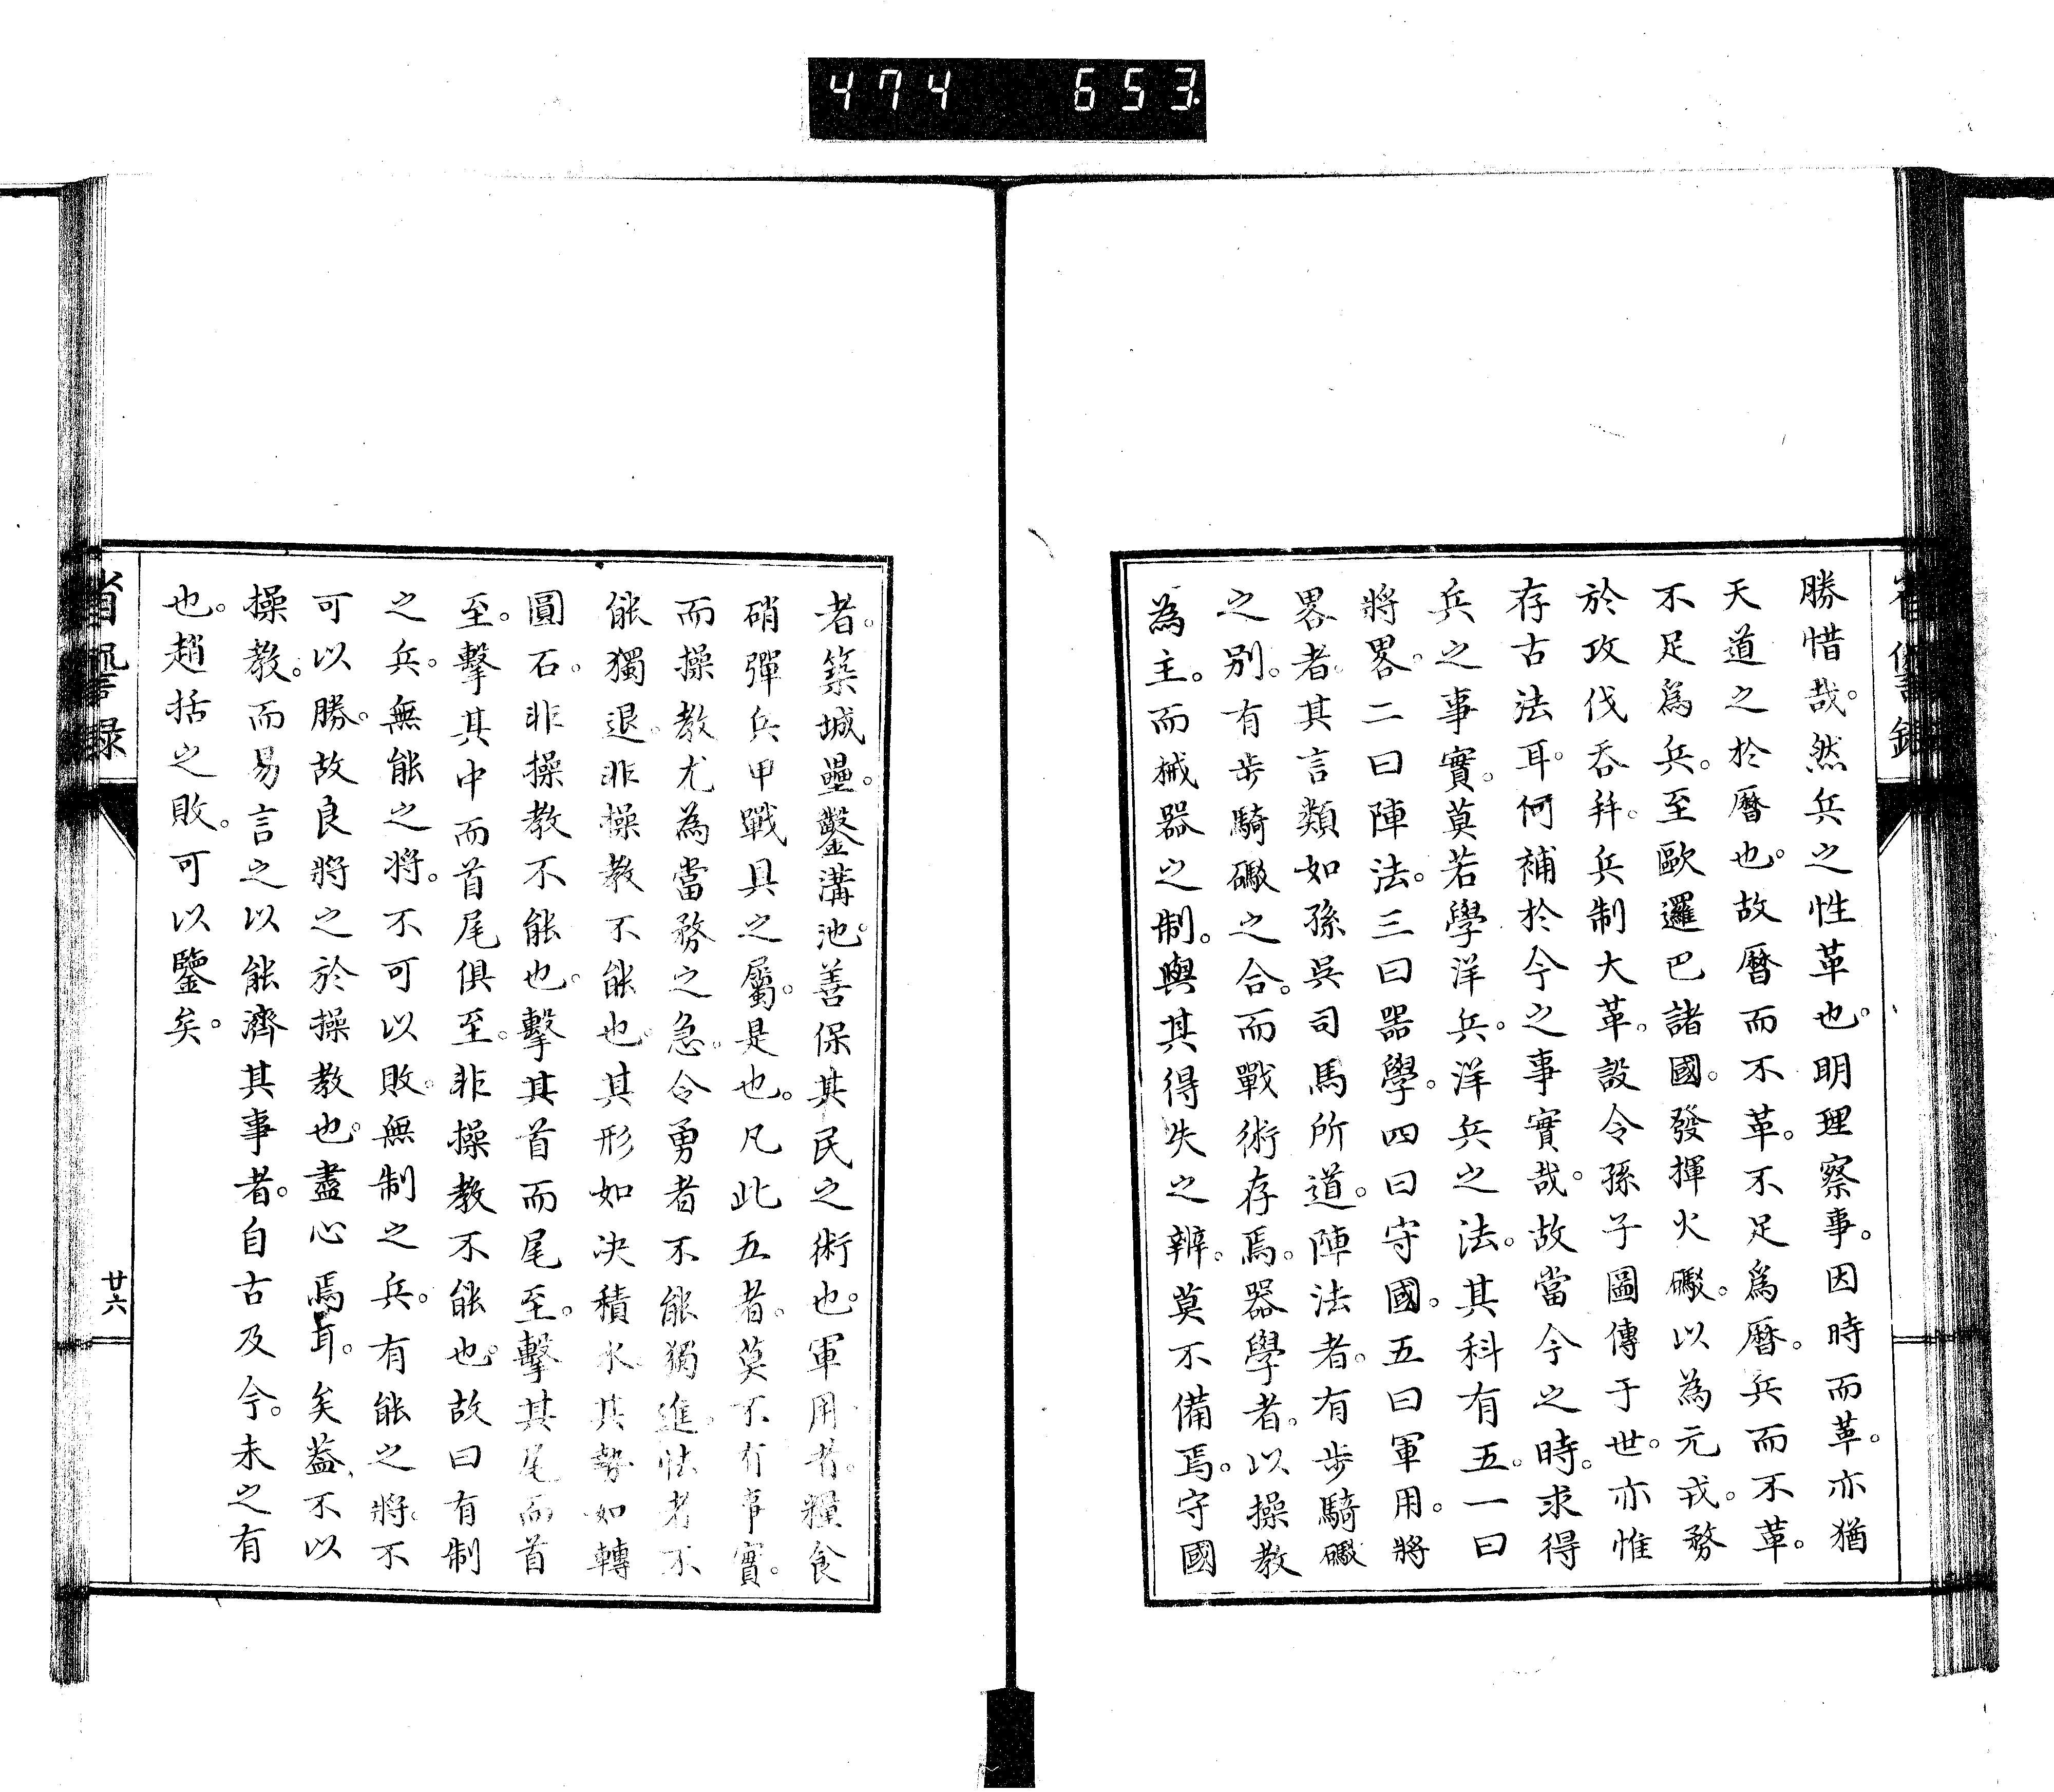 474 653
勝惜哉。然兵之性革也。明理察事。因時而革。亦猶
天道之於曆也。故曆而不革。不足爲曆。兵而不革。
不足爲兵。至歐邏巴諸國。發揮火礮。以為元戎。務
於攻伐吞幷。兵制大革。設令孫子圖傳于世。亦惟
存古法耳。何補於今之事實哉。故當今之時。求得
兵之事實。莫若學洋兵。洋兵之法。其科有五。一曰
將畧。二曰陣法。三曰器學。四曰守國。五曰軍用。將
畧者。其言類如孫吳司馬所道。陣法者。有步騎礮
之別。有步騎礮之合。而戰術存焉。器學者。以操教
為主。而械器之制。與其得失之辨。莫不備焉。守國
者。築城壘。鑿溝池。善保其民之術也。軍用者。糧食
硝彈兵甲戰具之屬。是也。凡此五者。莫不有事實。
而操教尤為當務之急。令勇者不能獨進。怯者不
能獨退。非操教不能也。其形如决積水。其勢如轉
圓石。非操教不能也。擊其首而尾至。擊其尾而首
至。擊其中而首尾俱至。非操教不能也。故曰有制
之兵。無能之將。不可以敗。無制之兵。有能之將。不
可以勝。故良將之於操教也。盡心焉耳。矣蓋、不以
操教。而易言之以能濟其事者。自古及今。未之有
也。趙括之敗。可以鑒矣。
省諐錄
廿六